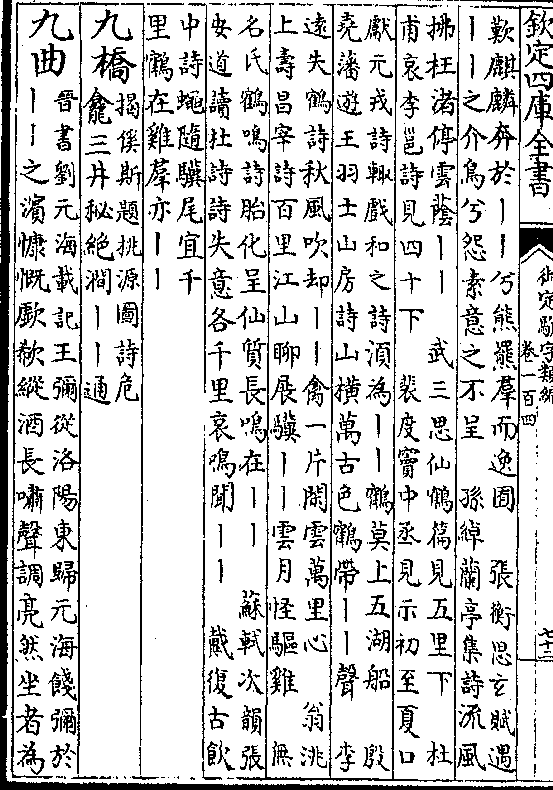 欽定四庫全書
御定駢字類編
卷一百四
七十三
歎麒麟奔於｜｜兮熊羆羣而逸囿　張衡思玄賦遇
｜｜之介鳥兮怨素意之不呈　孫綽蘭亭集詩流風
拂枉渚停雲蔭｜｜　武三思仙鶴篇見五里下　杜
甫哀李邕詩見四十下　裴度竇中丞見示初至夏口
獻元戎詩輙戲和之詩須為｜｜鶴莫上五湖船　殷
堯藩遊王羽士山房詩山横萬古色鶴帶｜｜聲　李
遠失鶴詩秋風吹却｜｜禽一片閒雲萬里心　翁洮
上壽昌宰詩百里江山聊展驥｜｜雲月怪驅雞　無
名氏鶴鳴詩胎化呈仙質長鳴在｜｜　蘇軾次韻張
安道讀杜詩詩失意各千里哀鳴聞｜｜　戴復古飲
中詩蠅隨驥尾宜千
里鶴在雞羣亦｜｜
九橋
揭傒斯題桃源圖詩危
龕三井秘絶澗｜｜通
九曲
晉書劉元海載記王彌從洛陽東歸元海餞彌於
｜｜之濱慷慨歔欷縱酒長嘯聲調亮然坐者為